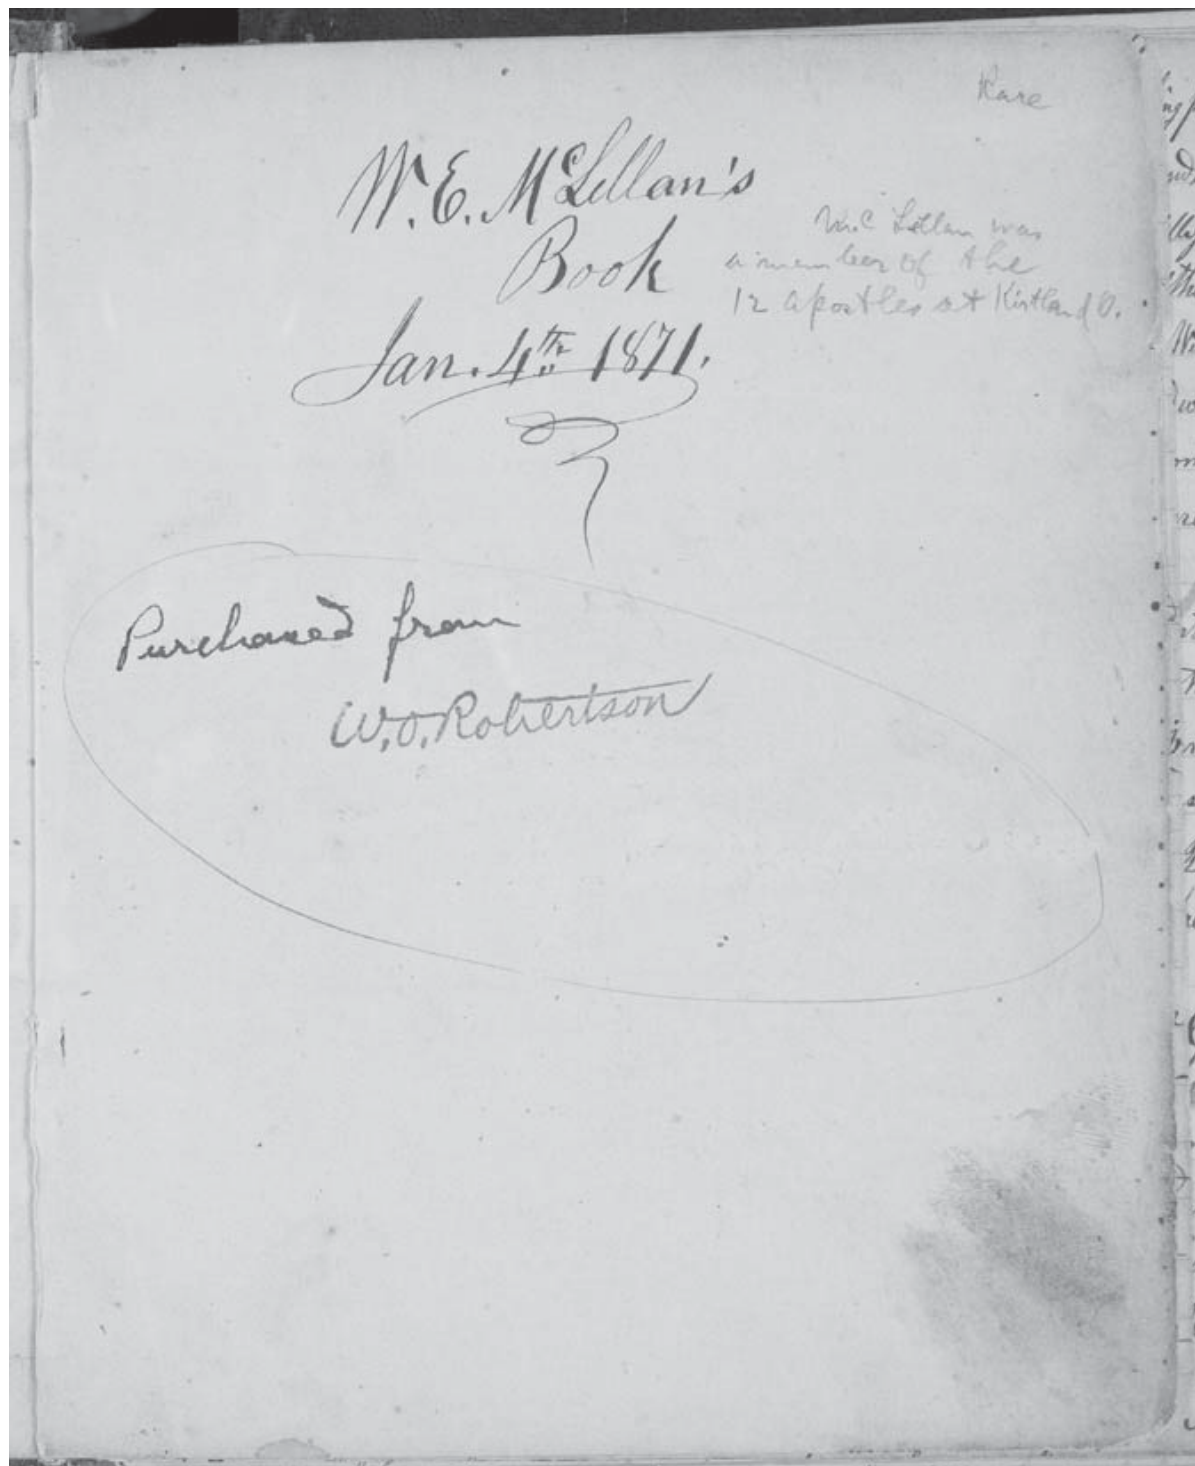 Rare
W. E. McLellan's
Book
Jan. 4th 1871.
McLellan was
a member of the
12 apostles at Kirtland O.
Purchased from
W. O. Robertson